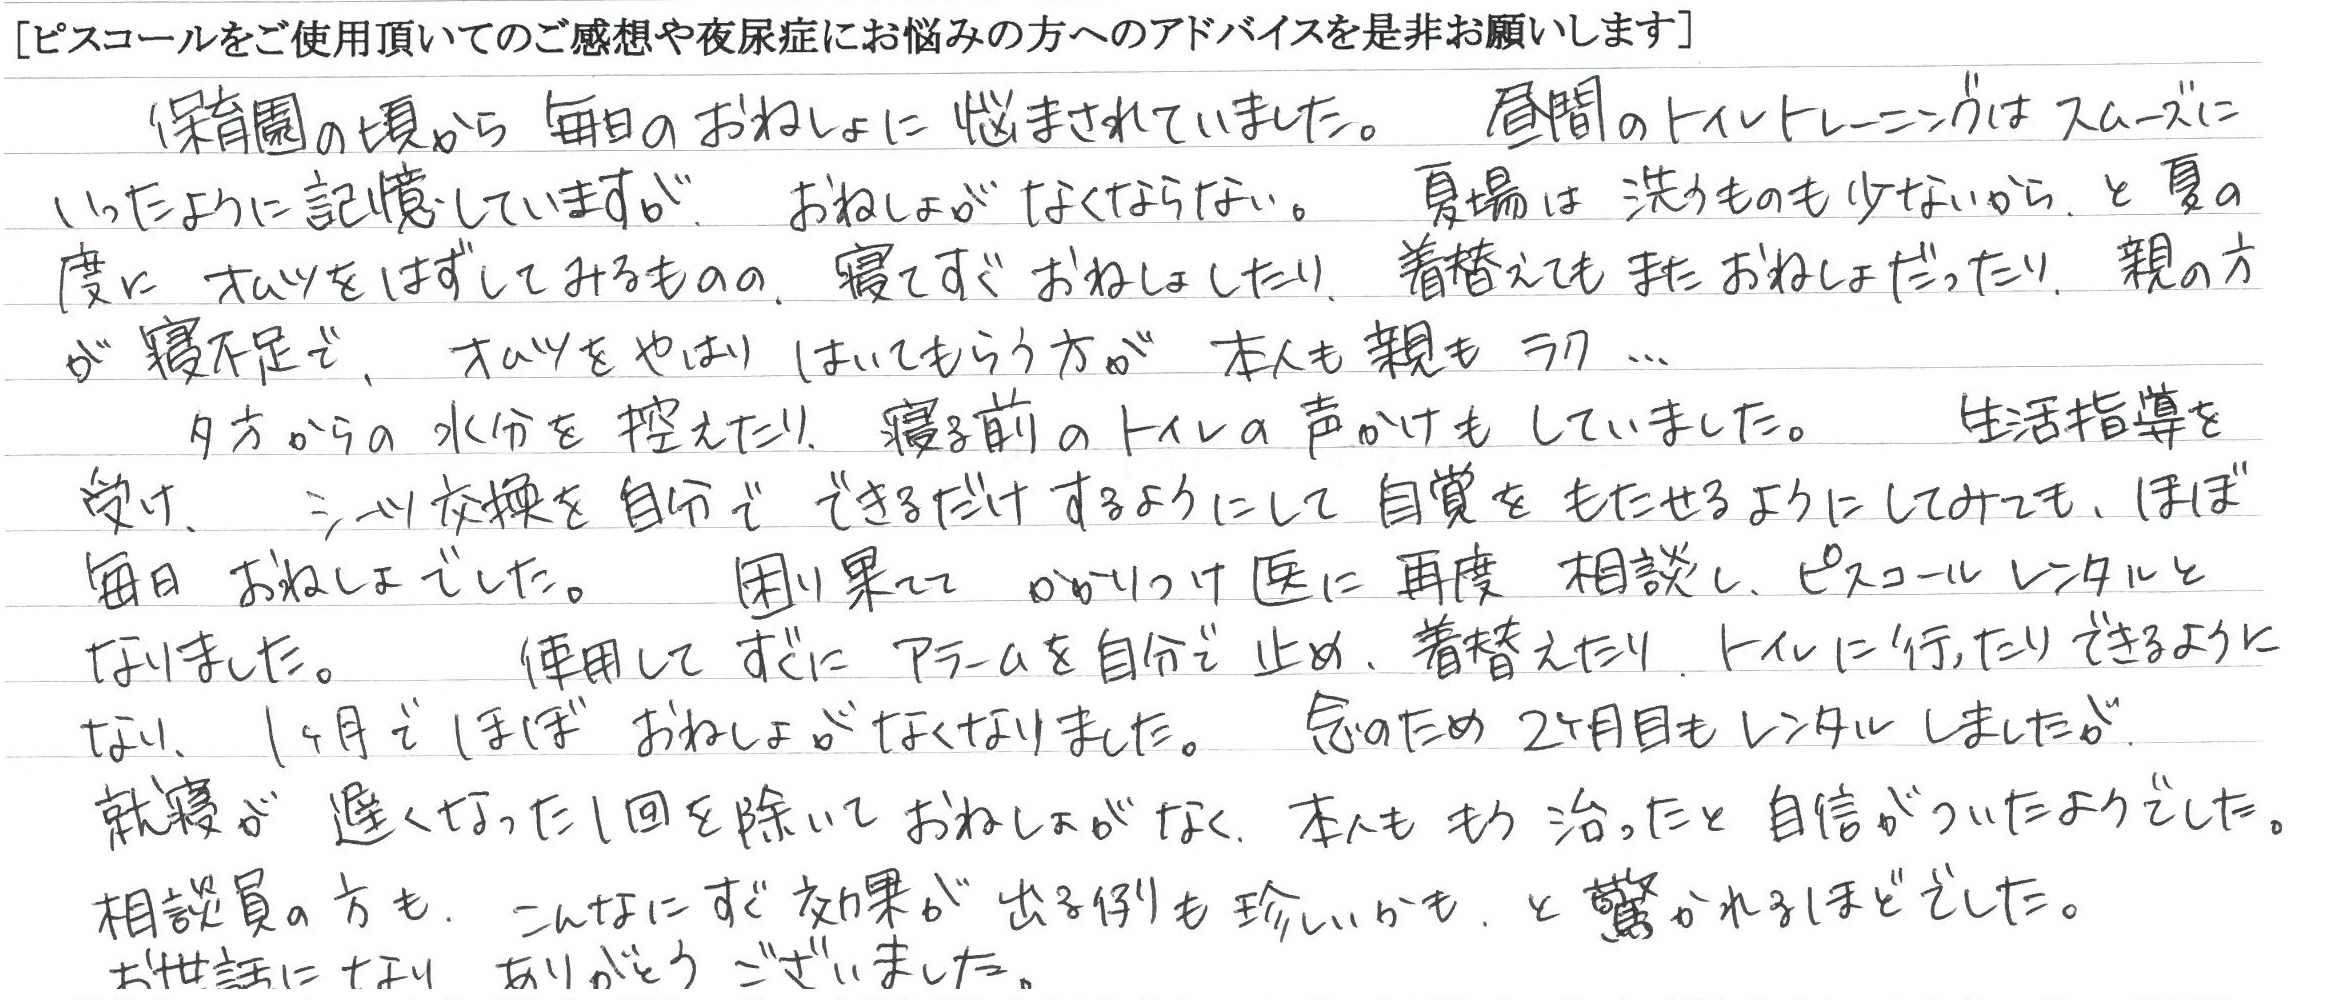 [ピスコールをご使用頂いてのご感想や夜尿症にお悩みの方へのアドバイスを是非お願いします]
保育園の頃から 毎日の おねしょに 悩まされていました。 昼間のトイレトレーニングは スムーズに
いったように記憶していますが、 おねしょが なくならない。 夏場は 洗うものも少ないから、と 夏の
度に オムツを はずしてみるものの、寝てすぐ おねしょしたり、 着替えても また おねしょだったり、 親の方
が 寝不足で、 オムツを やはり はいてもらう方が 本人も 親も ラク…
夕方からの 水分を 控えたり、 寝る前の トイレの 声かけも していました。 生活指導を
受け、 シーツ交換を 自分で できるだけ するようにして 自覚を もたせるように してみても、ほぼ
毎日 おねしょでした。 困り果てて かかりつけ医に 再度 相談し、ピスコール レンタルと
なりました。 使用して すぐに アラームを 自分で 止め、着替えたり、トイレに行ったり できるように
なり、 1ヶ月で ほぼ おねしょが なくなりました。 念のため 2ヶ月目も レンタル しましたが、
就寝が 遅くなった 1回を除いて おねしょが なく、 本人も もう 治ったと 自信が ついたようでした。
相談員の 方も、 こんなに すぐ 効果が 出る例も 珍しいかも、と 驚かれるほどでした。
お世話になり ありがとう ございました。